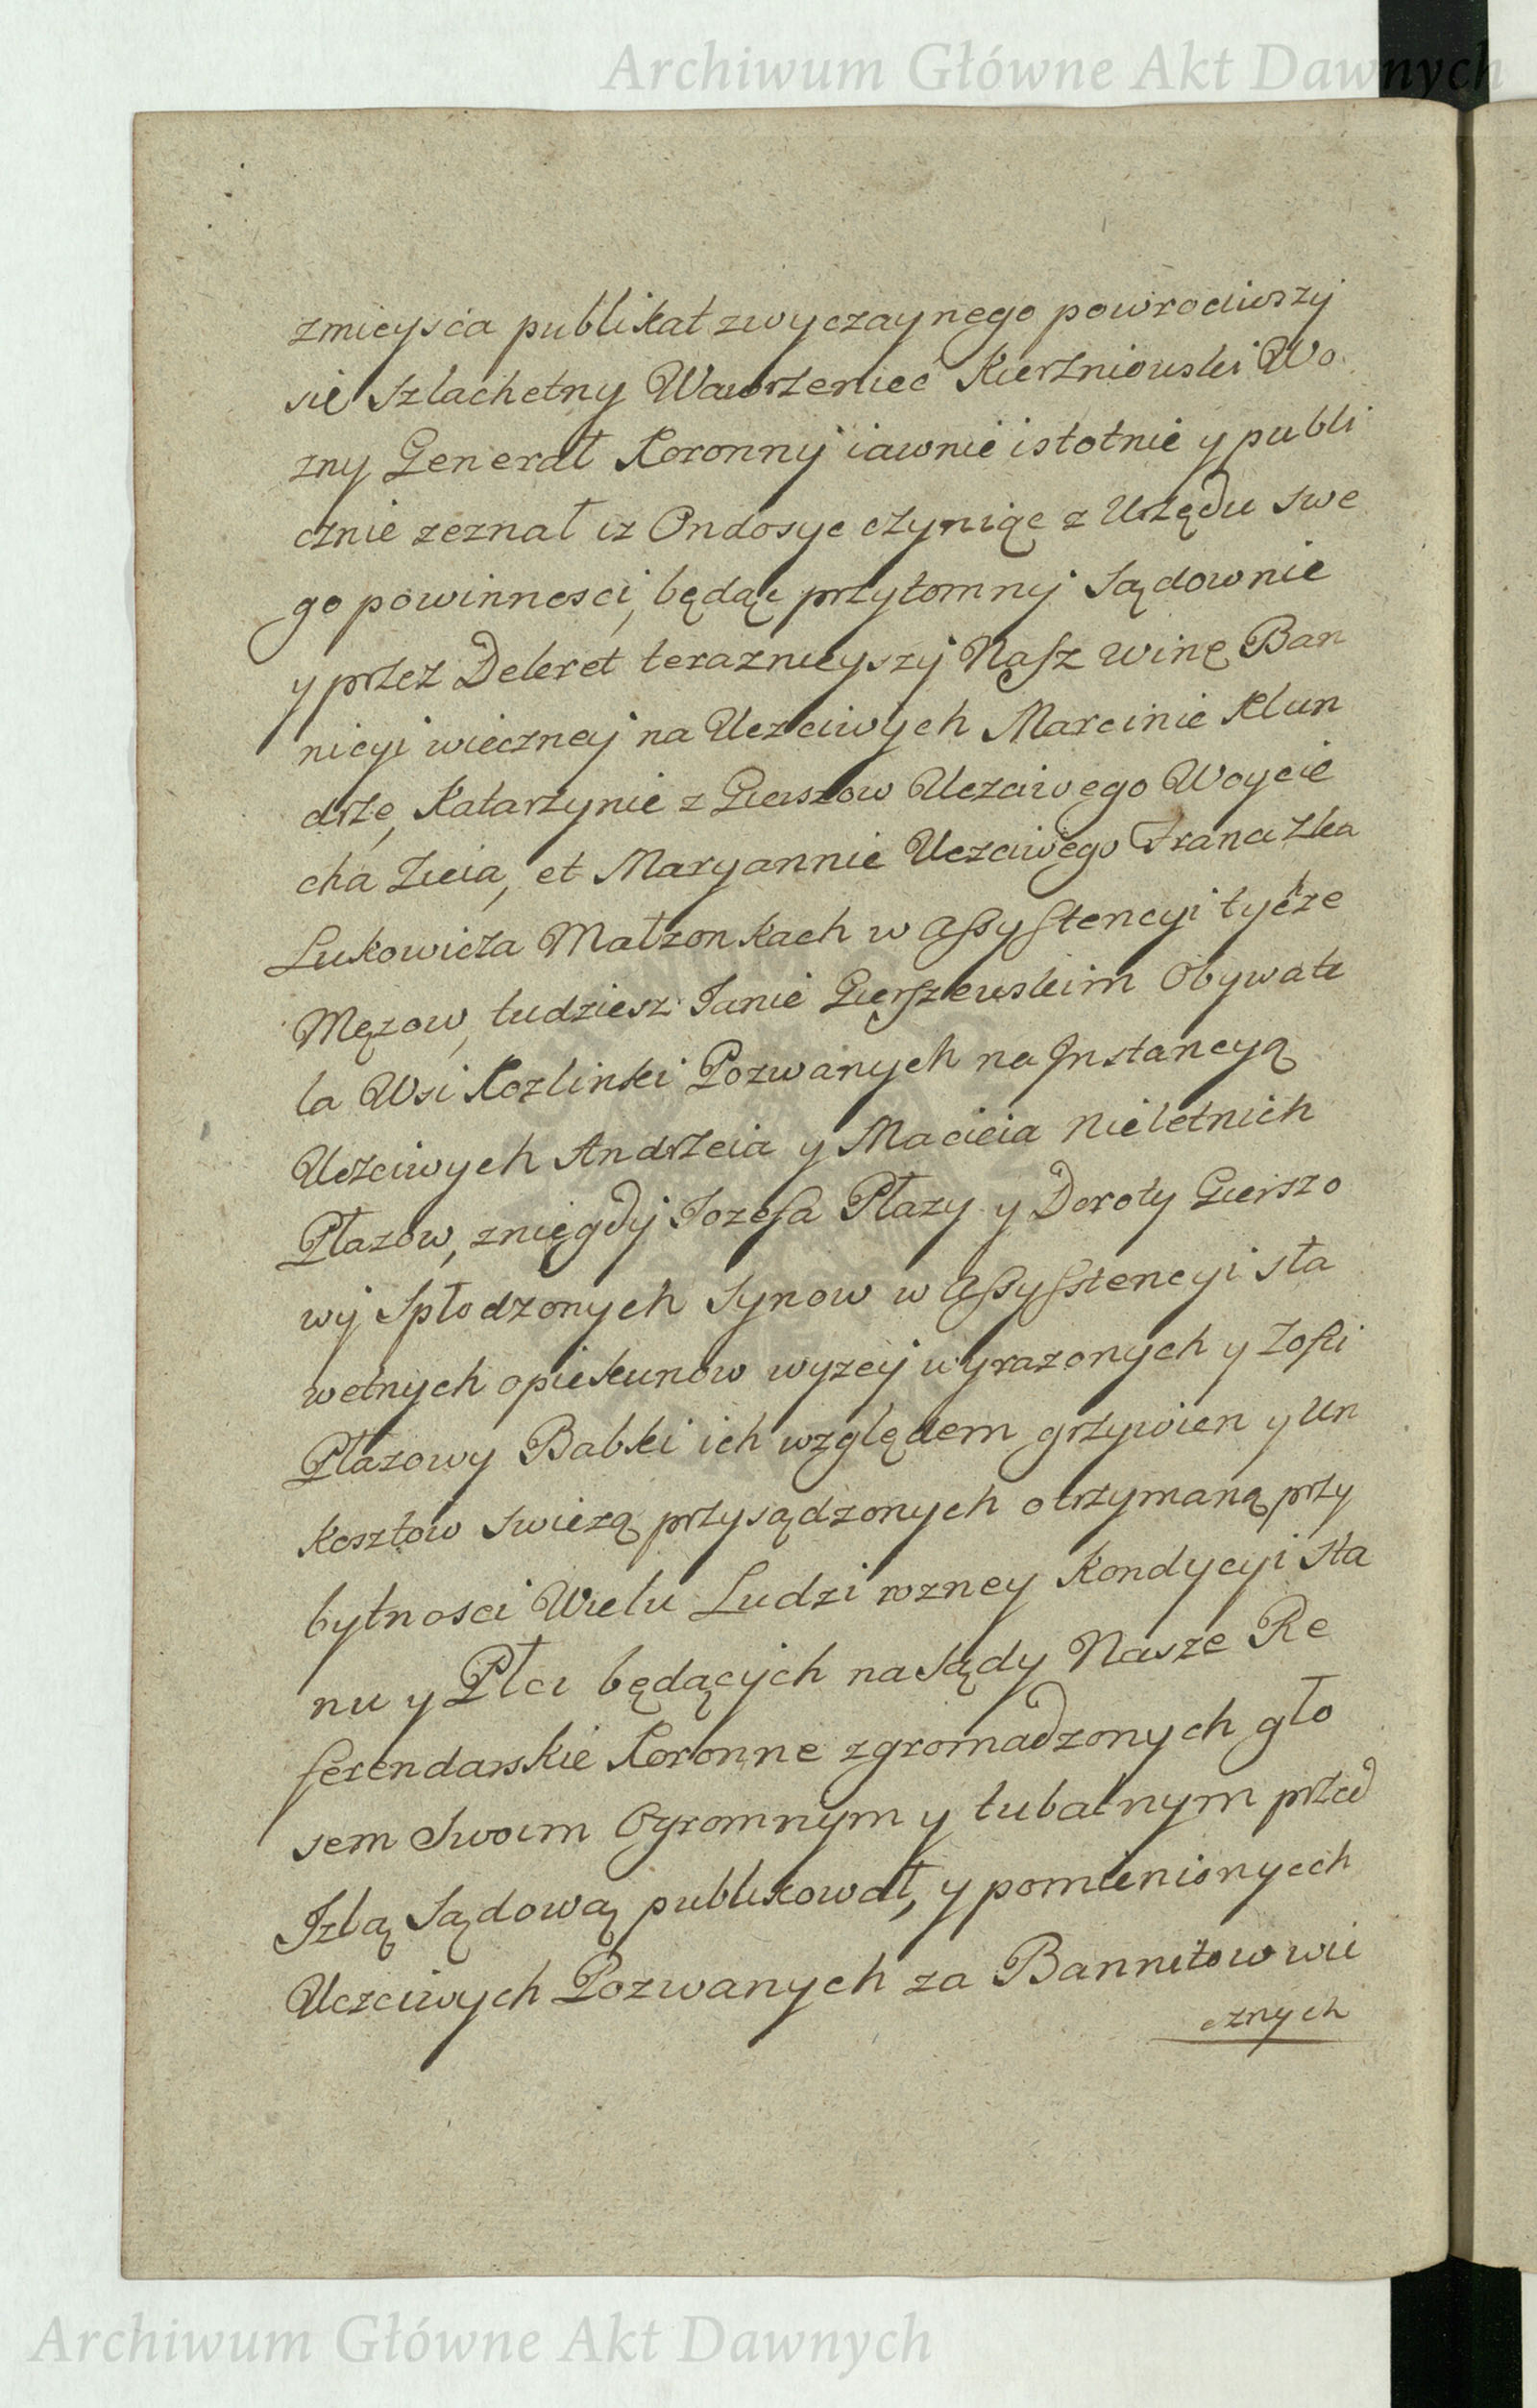 Archiwum Główne Akt Dawnych
zmieysca publikat zwyczaynego powrociwszy
sie Szlachetny Wawrzeniec Kierzniowski Wo
zny Generał Koronny iawnie istotnie y publi
cznie zeznał iz Ondosyc czyniąc z Urzędu swe
go powinnosci, będąc przytomny Sądownie
y przez Dekret teraznieyszy Nasz winę Ban
nicyi wieczney na Uczciwych Marcinie Klun
drze, Katarzynie z Gierszow Uczciwego Woycie
cha Zieia, et Maryannie Uczciwego Franciszka
Lukowicza Małzonkach w assystencyi tychze
Męzow, tudziesz Janie Gierszewskim Obywate
la Wsi Kozlinki Pozwanych na Instancyą
Uczciwych Andrzeia y Macieia nieletnich
Płazow, zniegdy Jozefa Płazy y Doroty Gierszo
wy Spłodzonych Synow w assystencyi sła
wetnych opiekunow wyzey wyrazonych y Zofii
Płazowy Babki ich względem grzywien y un
kosztow swiezą przysądzonych otrzymaną, przy
bytnosci Wielu Ludzi rozney Kondycyi Sta
nu y Płci będących na Sądy Nasze Re
ferendarskie Koronne zgromadzonych gło
sem Swoim Ogromnym y tubalnym przed
Izbą Sądową publikował, y pomienionyech
Uczciwych Pozwanych za Bannitow wie
cznych
Archiwum Główne Akt Dawnych